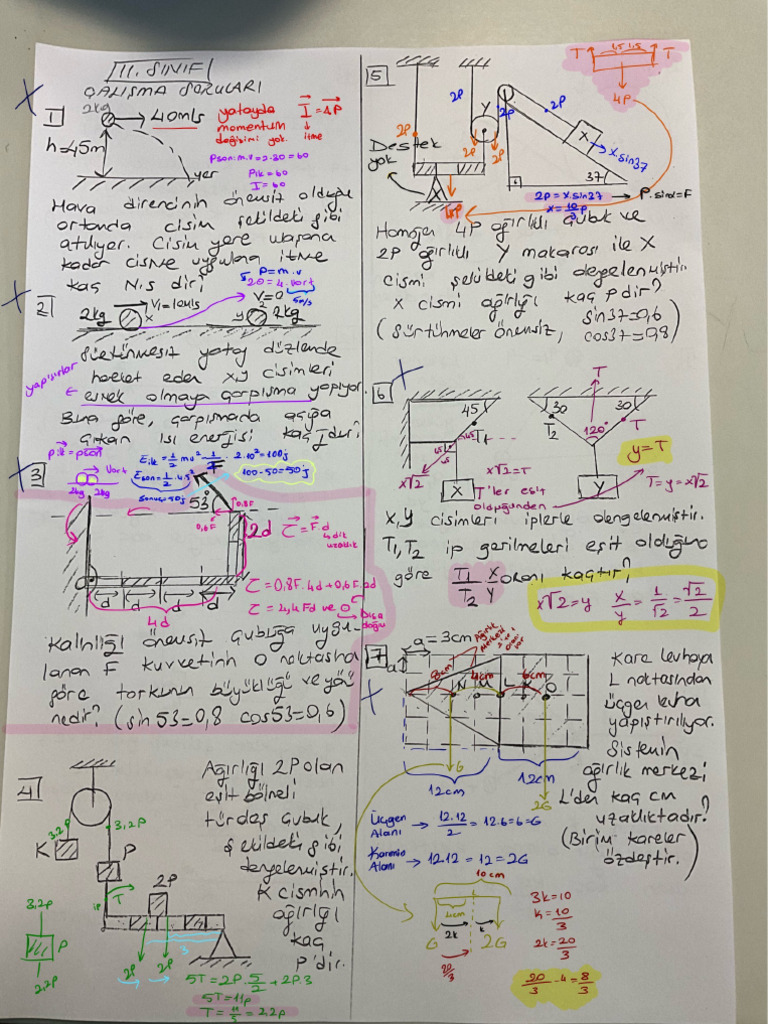 11. SINIF
ÇALIŞMA SORULARI
1
2kg
40m/s
h=45m
yer
yatayda
momentum
değişimi yok.
I = ΔP
itme
Pson: m.v = 2.30 = 60
Pilk = 60
I = 60
Hava direncinin önemsiz olduğu
ortamda cisim şekildeki gibi
atılıyor. Cisim yere ulaşana
kadar cisme uygulana itme
kaç N.s dir
2
2kg
V₁=10m/s
x
y
V=0
2kg
P=m.v
20=4.Vort
5m/s
Sürtünmesiz yatay düzlemde
hareket eden x,y cisimleri
esnek olmaya çarpışma yapıyor.
yapışırlar
Buna göre, çarpışmada açığa
çıkan ısı enerjisi kaç J dur?
Pilk = Pson
Vort
2kg 2kg
Eilk = 1/2 mv² = 1/2 . 2.10² = 100j
Eson = 1/2 . 4.5²
sonuç = 50j
100-50=50j
3
53°
F
0,8F
0,6F
2d
O
d d d d
4d
τ = F.d
dik
uzaklık
τ = 0,8F.4d + 0,6F.2d
τ = 4,4Fd ve
Dışa
doğu
Kalınlığı önemsiz çubuğa uygu-
lanan F kuvvetinin O noktasına
göre torkunun büyüklüğü ve yönü
nedir? (sin53=0,8 cos53=0,6)
4
K
3,2P
3,2P
P
1P
T
2P
2P
2P
3
3,2P
P
2,2P
Ağırlığı 2P olan
eşit bölmeli
türdaş çubuk,
şekildeki gibi
dengelenmiştir.
K cisminin
ağırlığı
kaç
P'dir.
5T = 2P . 5/2 + 2P.3
5T = 11P
T = 11/5 = 2,2P
5
T
1,5 1,5
T
4P
2P
2P
Y
2P
2P
2P
2P
X
x.sin37
37
Destek
yok
4P
2P = x.sin37
x = 10/3 P
P.sinα=F
Homojen 4P ağırlıklı çubuk ve
2P ağırlıklı Y makarası ile X
cismi şekildeki gibi dengelenmiştir.
X cismi ağırlığı kaç P dir?
(Sürtünmeler önemsiz, sin37=0,6 cos37=0,8)
6
45
T₁
45
45
x√2
x√2=T
X
T'ler eşit
olduğundan
T
30
30
T₂
120°
T
Y
y=T
T=y=x√2
X,Y cisimleri iplerle dengelenmiştir.
T₁, T₂ ip gerilmeleri eşit olduğuna
göre T₁/T₂ X/Y oranı kaçtır?
x√2=y x/y = 1/√2 = √2/2
7
a = 3cm
a
8cm
4cm
6cm
N M L K O
G
2G
12cm
12cm
Kare levhaya
L noktasından
üçgen levha
yapıştırılıyor.
Sistemin
ağırlık merkezi
L'den kaç cm
uzaklıktadır?
(Birim kareler
özdeştir.)
Üçgen
Alanı → 12.12/2 = 12.6 = 6 = G
Karenin
Alanı → 12.12 = 12 = 2G
10cm
4cm
2k
k
G
2G
20/3
3k=10
k=10/3
2k=20/3
20/3 - 4 = 8/3